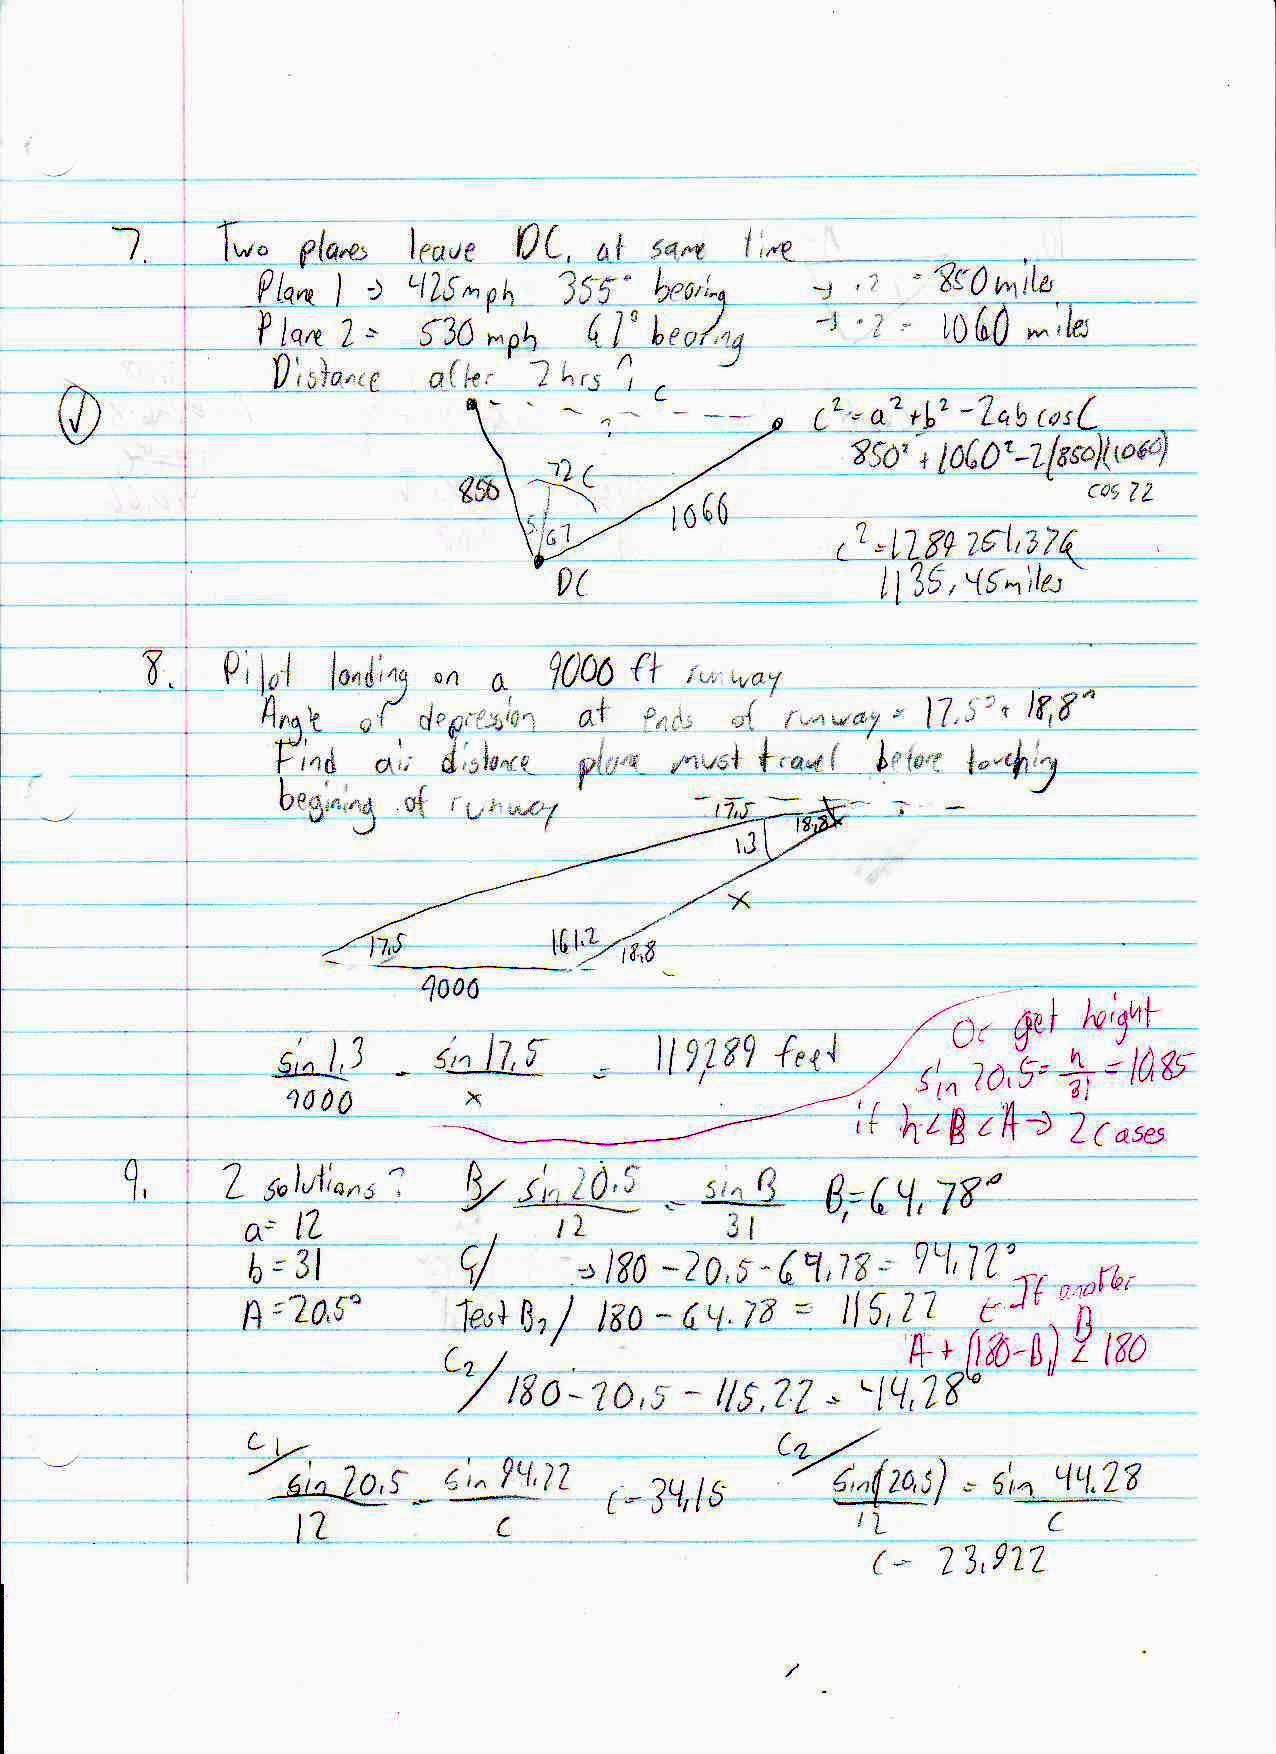 7. Two planes leave DC, at same time
Plane 1 → 425mph 355° bearing → ·2 = 850 miles
Plane 2 = 530 mph 67° bearing → ·2 = 1060 miles
Distance after 2 hrs?
c
?
c² = a² + b² - 2ab cos C
72 C
850² + 1060² - 2(850)(1060)
cos 72
850
1060
5
67
c² = 1289251.376
DC
1135.45 miles
8. Pilot landing on a 9000 ft runway
Angle of depression at ends of runway = 17.5° + 18.8°
Find air distance plane must travel before touching
begining of runway
17.5
18.8
1.3
x
17.5
161.2
18.8
9000
Or get height
sin 1.3 / 9000 = sin 17.5 / x = 119,289 feet
sin 20.5 = h/31 = 10.85
if h < B < A → 2 cases
9. 2 solutions? B/ sin 20.5 / 12 = sin B / 31 B₁ = 64.78°
a = 12
b = 31 C/ → 180 - 20.5 - 64.78 = 94.72°
A = 20.5° Test B₂/ 180 - 64.78 = 115.22 ← If another B
A + (180 - B₁) < 180
C₂/ 180 - 20.5 - 115.22 = 44.28°
C₁/ sin 20.5 / 12 = sin 94.72 / c c = 34.15
C₂/ sin(20.5) / 12 = sin 44.28 / c
c = 23.922